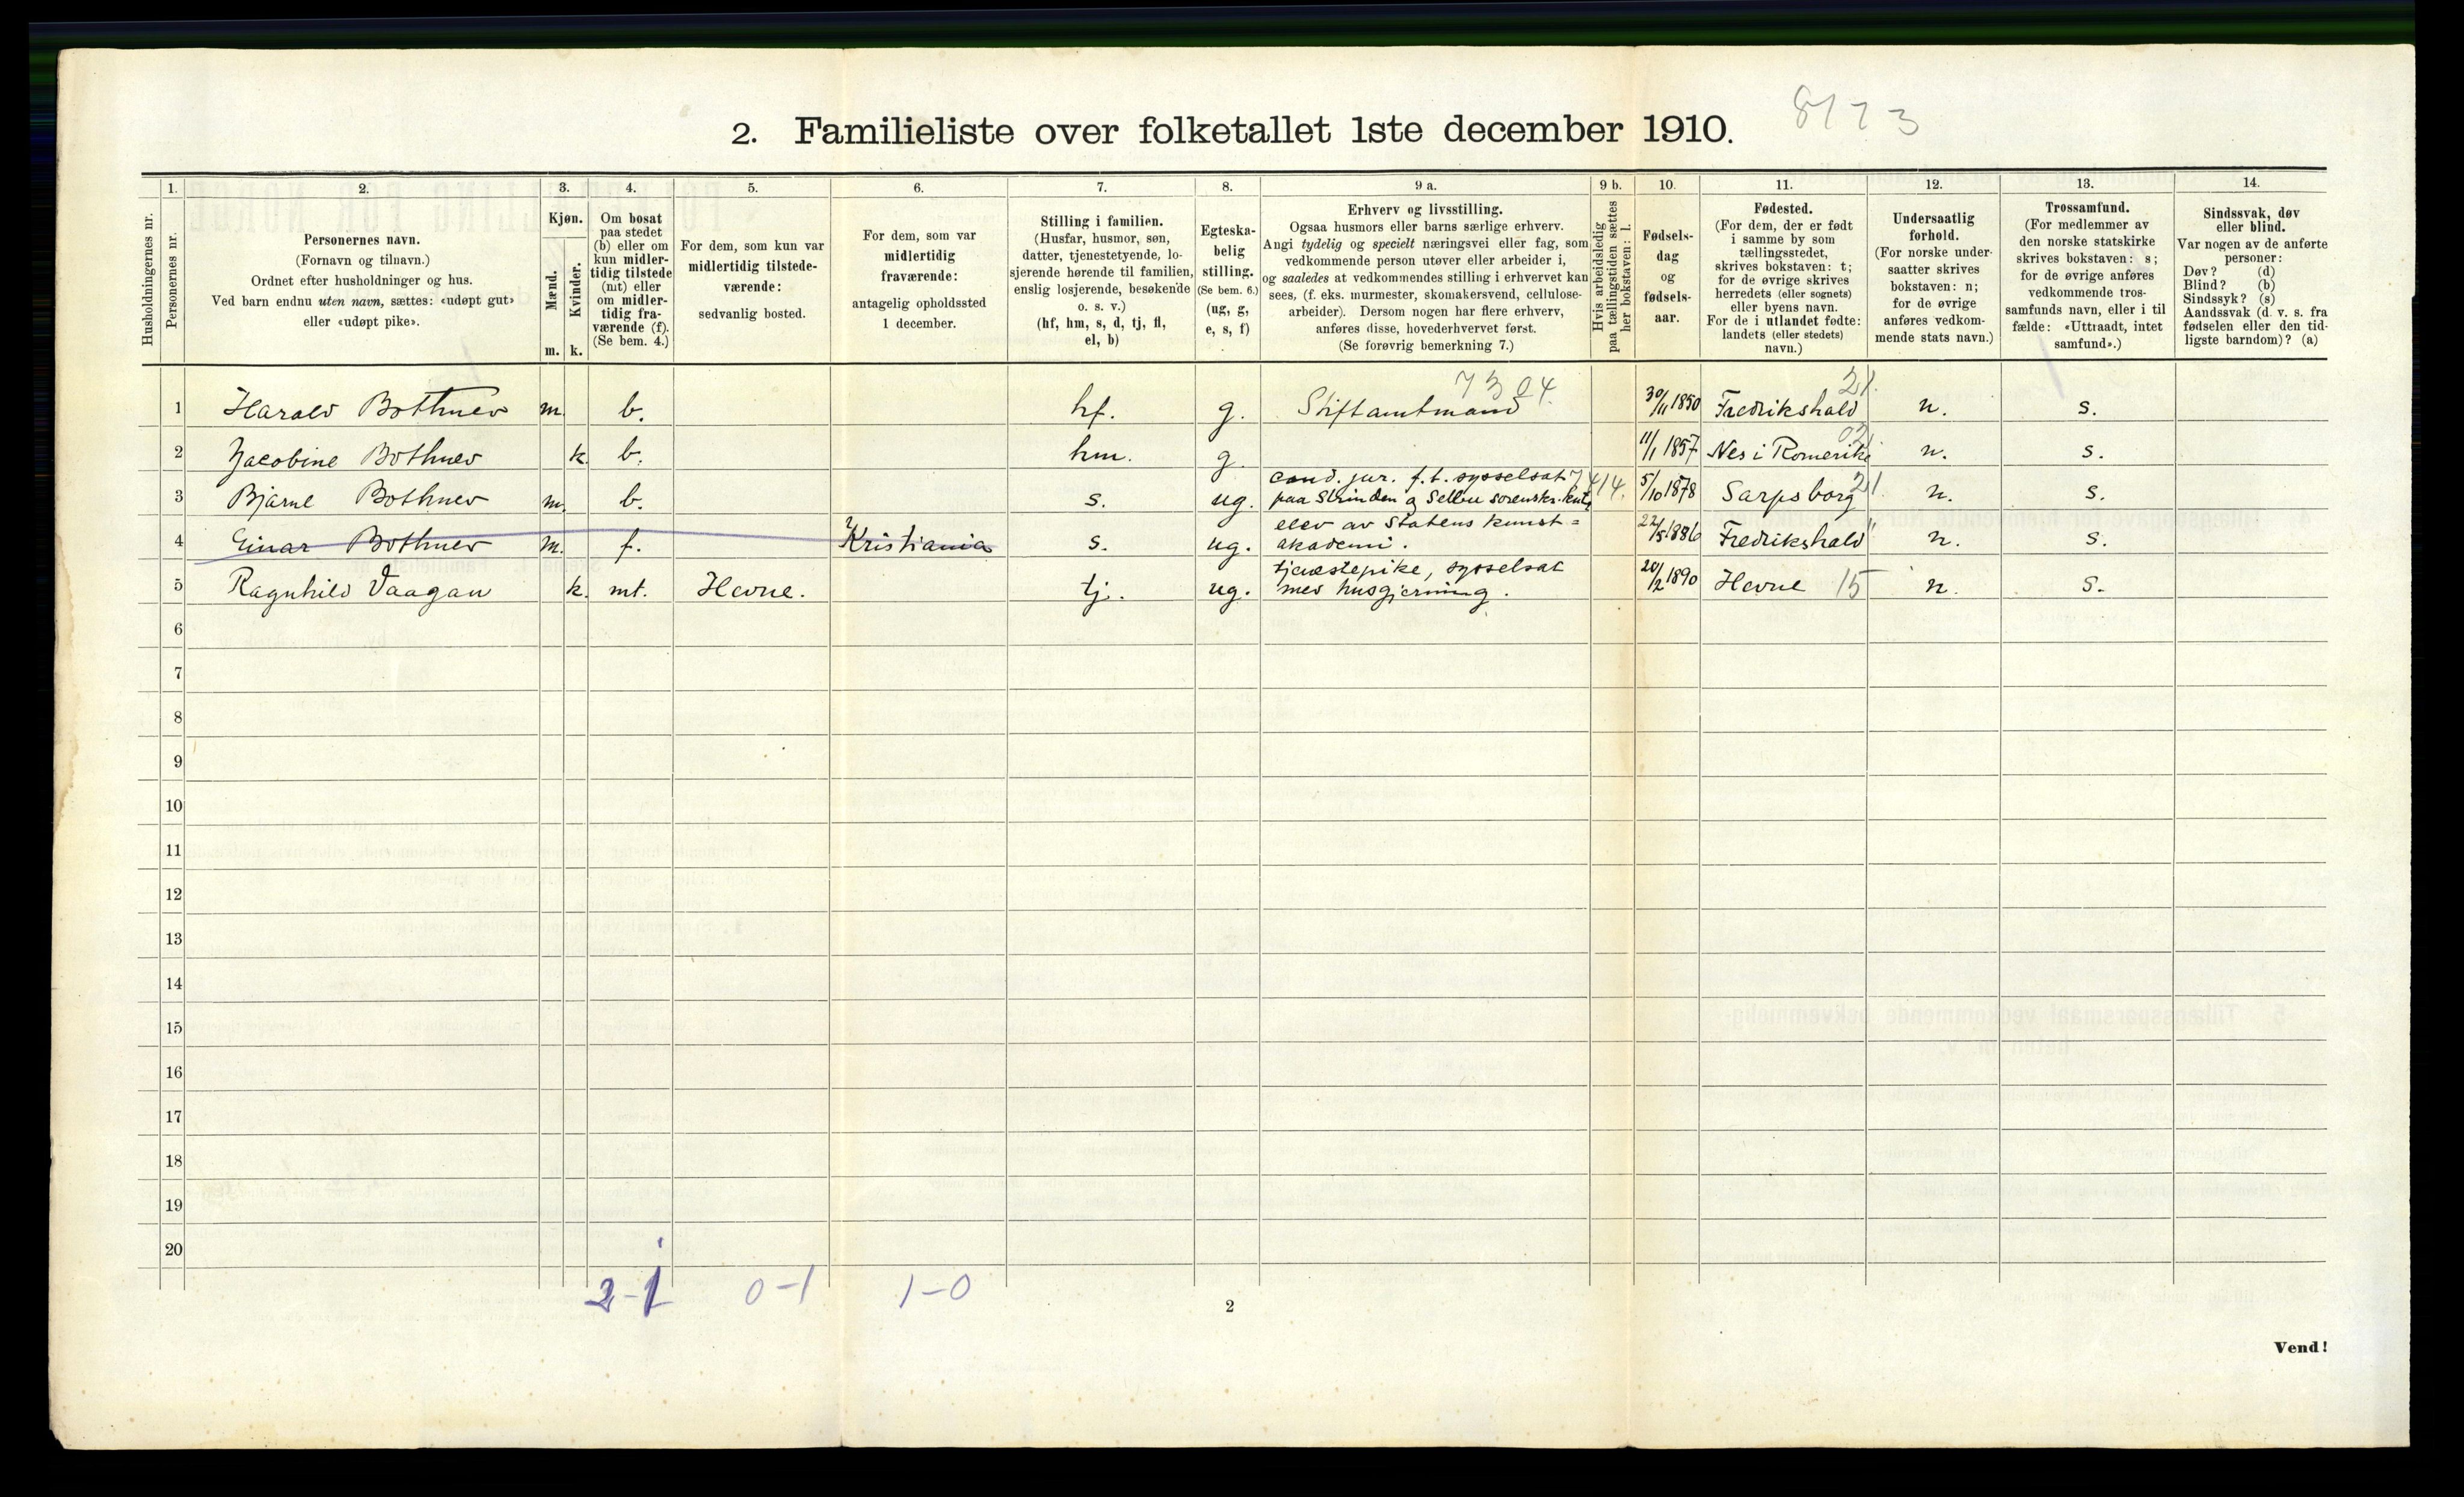 2. Familieliste over folketallet 1ste december 1910.
8123
Husholdningernes nr.
1.
Personernes nr.
2.
Personernes navn.
(Fornavn og tilnavn.)
Ordnet efter husholdninger og hus.
Ved barn endnu uten navn, sættes: «udøpt gut»
eller «udøpt pike».
3.
Kjøn.
Mænd.
Kvinder.
m. k.
4.
Om bosat
paa stedet
(b) eller om
kun midler-
tidig tilstede
(mt) eller
om midler-
tidig fra-
værende (f).
(Se bem. 4.)
5.
For dem, som kun var
midlertidig tilstede-
værende:
sedvanlig bosted.
6.
For dem, som var
midlertidig
fraværende:
antagelig opholdssted
1 december.
7.
Stilling i familien.
(Husfar, husmor, søn,
datter, tjenestetyende, lo-
sjerende hørende til familien,
enslig losjerende, besøkende
o. s. v.)
(hf, hm, s, d, tj, fl,
el, b)
8.
Egteska-
belig
stilling.
(Se bem. 6.)
(ug, g,
e, s, f)
9 a.
Erhverv og livsstilling.
Ogsaa husmors eller barns særlige erhverv.
Angi tydelig og specielt næringsvei eller fag, som
vedkommende person utøver eller arbeider i,
og saaledes at vedkommendes stilling i erhvervet kan
sees, (f. eks. murmester, skomakersvend, cellulose-
arbeider). Dersom nogen har flere erhverv,
anføres disse, hovederhvervet først.
(Se forøvrig bemerkning 7.)
9 b.
Hvis arbeidsledig
paa tællingstiden sættes
her bokstaven: l.
10.
Fødsels-
dag
og
fødsels-
aar.
11.
Fødested.
(For dem, der er født
i samme by som
tællingsstedet,
skrives bokstaven: t;
for de øvrige skrives
herredets (eller sognets)
eller byens navn.
For de i utlandet fødte:
landets (eller stedets)
navn.)
12.
Undersaatlig
forhold.
(For norske under-
saatter skrives
bokstaven: n;
for de øvrige
anføres vedkom-
mende stats navn.)
13.
Trossamfund.
(For medlemmer av
den norske statskirke
skrives bokstaven: s;
for de øvrige anføres
vedkommende tros-
samfunds navn, eller i til
fælde: «Uttraadt, intet
samfund».)
14.
Sindssvak, døv
eller blind.
Var nogen av de anførte
personer:
Døv? (d)
Blind? (b)
Sindssyk? (s)
Aandssvak (d. v. s. fra
fødselen eller den tid-
ligste barndom)? (a)
7304. 21.
1 Harald Bothner m. b. hf. g. Stiftamtmand 30/11 1850 Fredrikshald n. s.
2 Jacobine Bothner k. b. hm. g. 11/1 1857 Nes i Romerike 02 n. s.
cand. jur. f. t. sysselsat 7414.
3 Bjarne Bothner m. b. s. ug. paa Strinden og Selbu sorenskr.kont. 5/10 1878 Sarpsborg 21. n. s.
elev av Statens kunst=
4 Einar Bothner m. f. Kristiania s. ug. akademi. 22/5 1886 Fredrikshald " n. s.
tjenestepike, sysselsat
5 Ragnhild Vaagan k. mt. Hevne. tj. ug. med husgjerning. 20/2 1890 Hevne 15 n. s.
6
7
8
9
10
11
12
13
14
15
16
17
18
19
20
2-1 0-1 1-0
2
Vend!